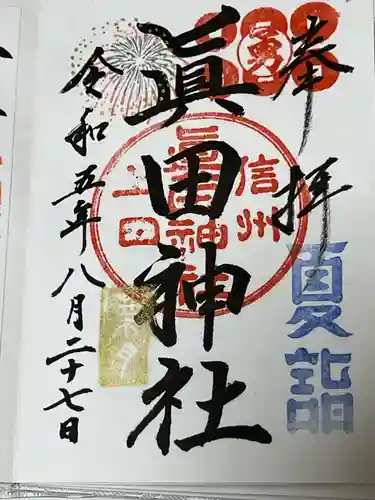 奉拝
夏詣
勇
眞田神社
信州
眞田神社
上田
令和五年八月二十七日